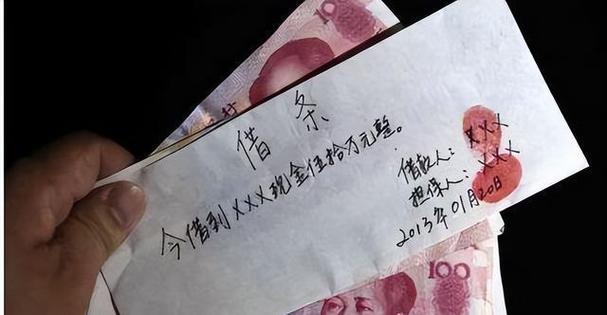 借条
今借到XXX现金伍拾万元整。
借款人：XXX
担保人：XXX
2013年01月20日
100
100